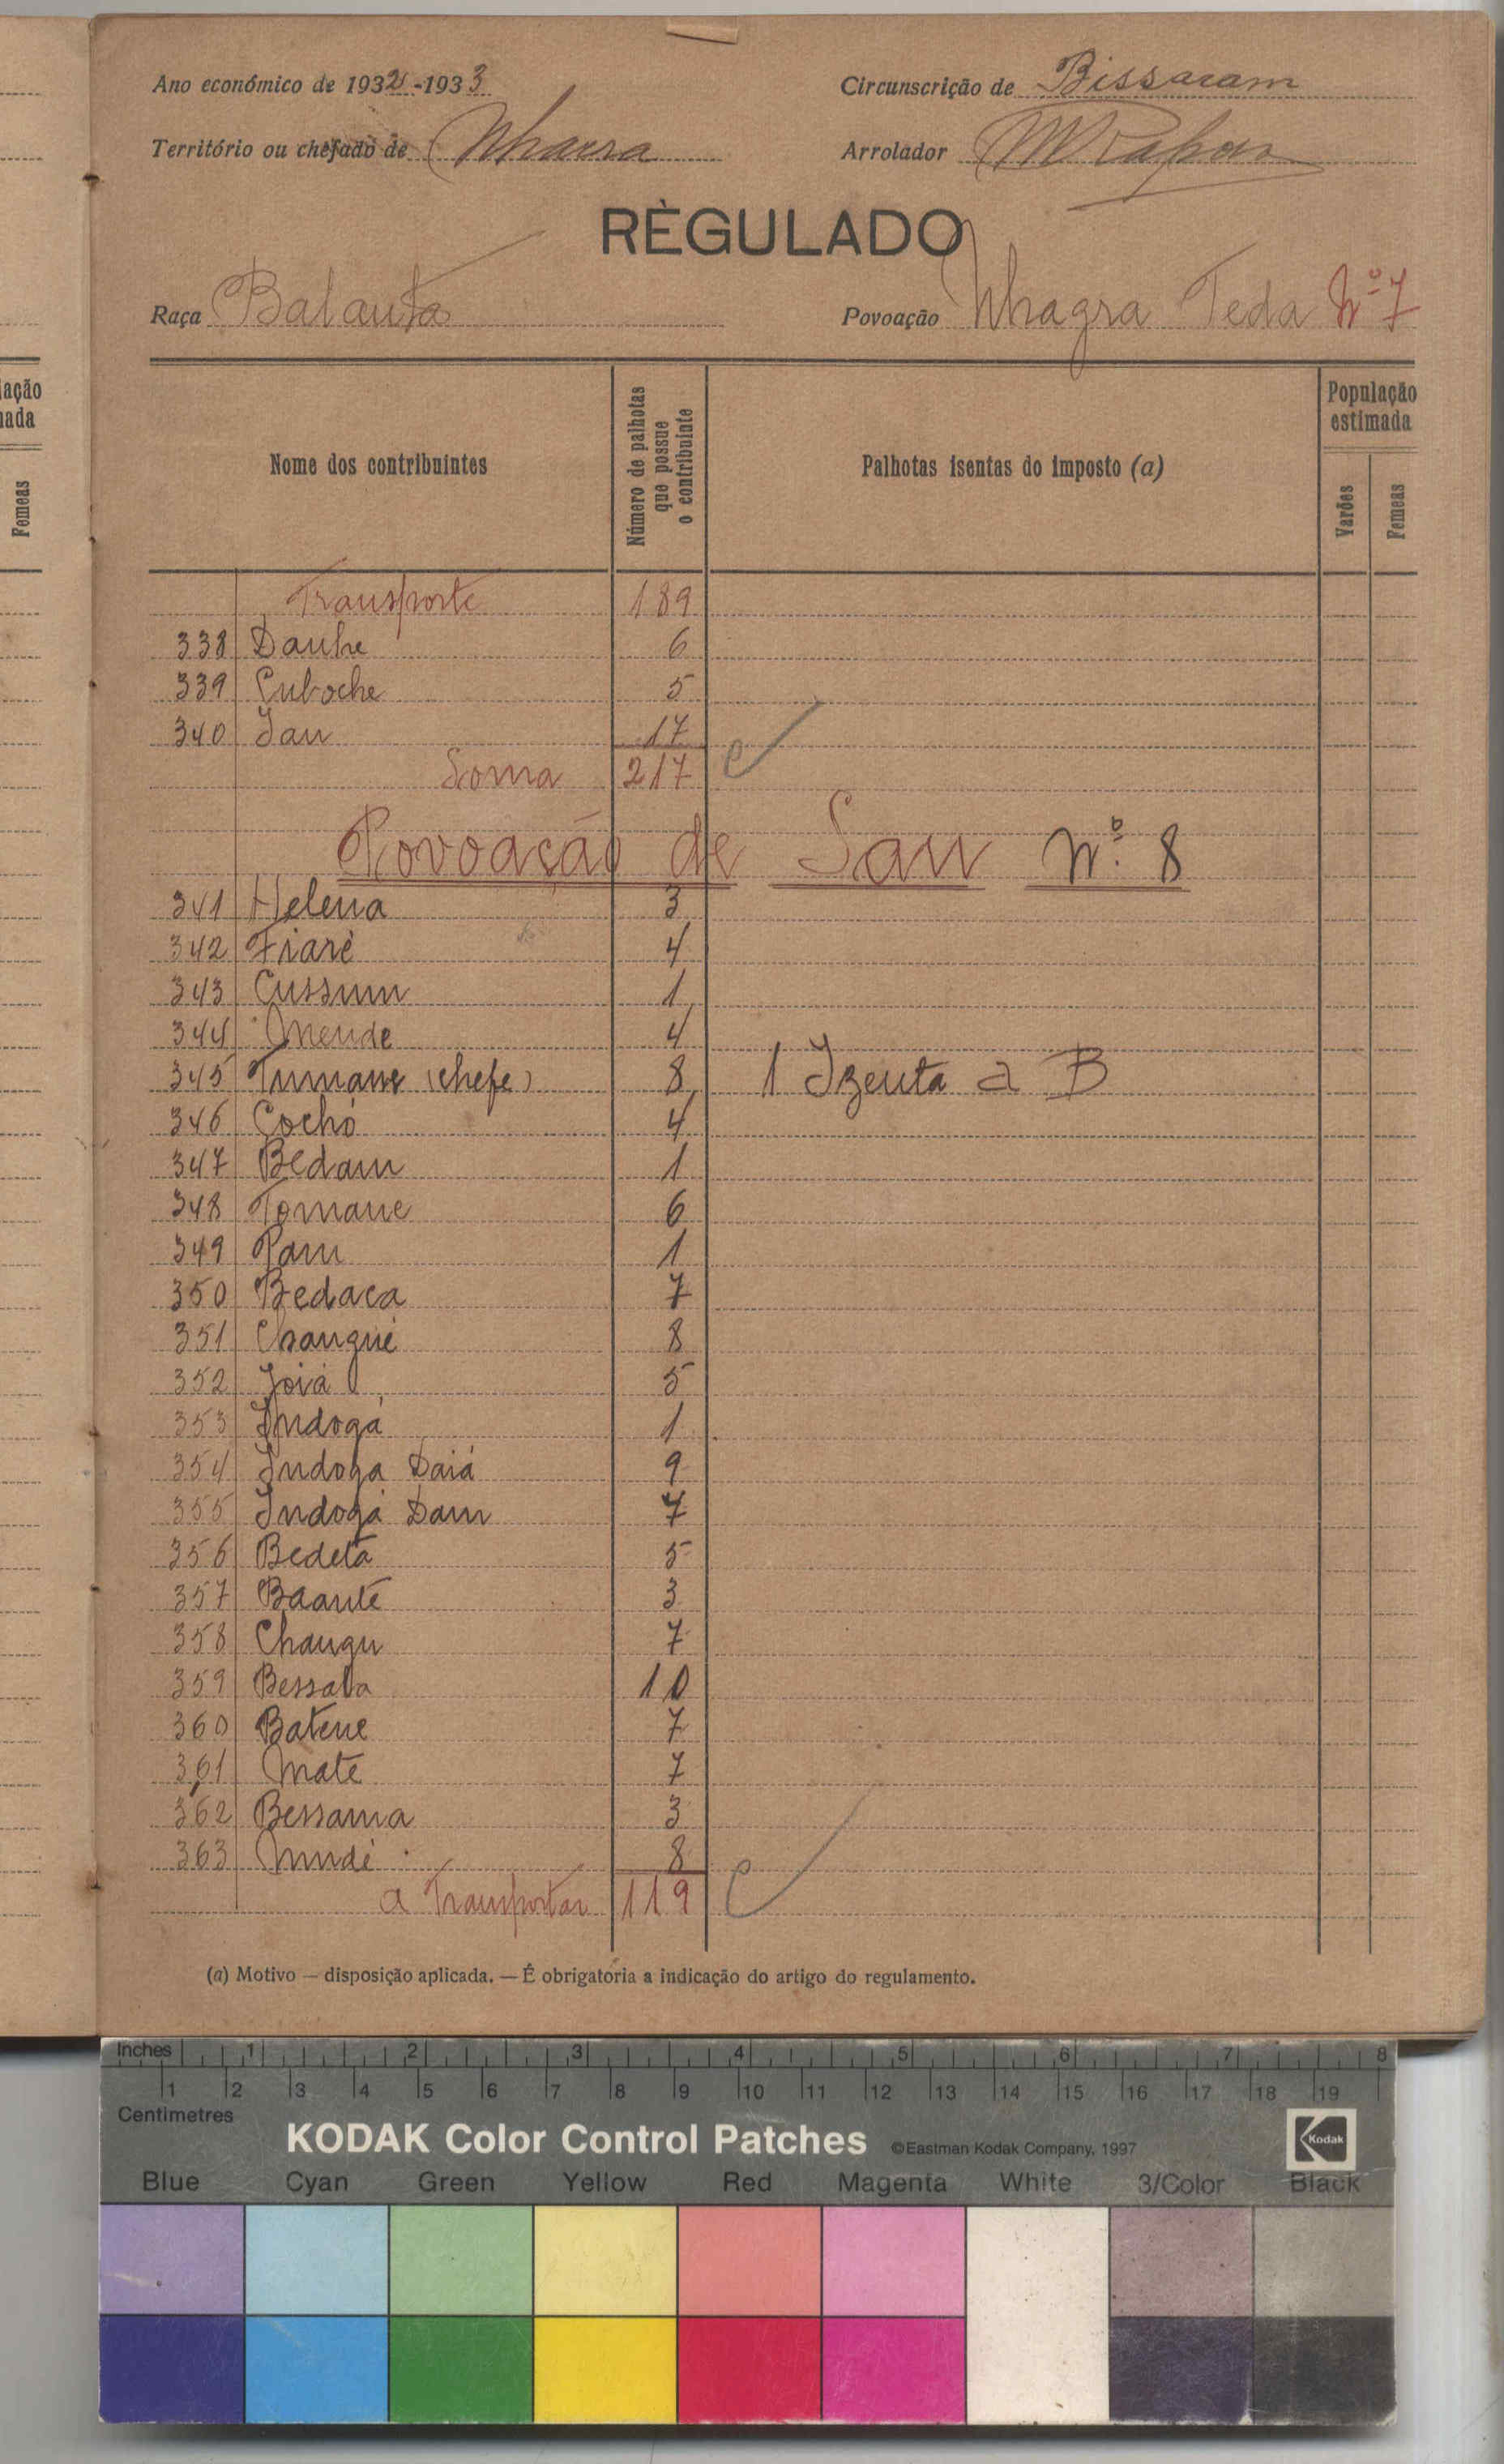 Ano económico de 1932-1933
Circunscrição de Bissaram
Território ou chefado de Nhacra
Arrolador
RÈGULADO
Raça Balanta
Povoação Nhagra Teda Nº 7
lação
nada
Femeas
Nome dos contribuintes
Número de palhotas que possue o contribuinte
Palhotas isentas do imposto (a)
População estimada
Varões
Femeas
Transporte 189
338 Danhe 6
339 Cuboche 5
340 Jau 17
Soma 217
Povoação de Sau Nº 8
341 Helena 3
342 Fiaré 4
343 Cussum 1
344 Mende 4
345 Tumane (chefe) 8 1 Izenta a B
346 Cochó 4
347 Bedam 1
348 Tomane 6
349 Pam 1
350 Bedaca 7
351 Changué 8
352 Joiá 5
353 Indogá 1
354 Indoga Daiá 9
355 Indogá Dam 7
356 Bedeta 5
357 Baanté 3
358 Changu 7
359 Bessaba 10
360 Batene 7
361 Mate 7
362 Bessama 3
363 Mudé 8
a Transportar 119
(a) Motivo — disposição aplicada. — É obrigatória a indicação do artigo do regulamento.
Inches 1 2 3 4 5 6 7 8
1 2 3 4 5 6 7 8 9 10 11 12 13 14 15 16 17 18 19
Centimetres
KODAK Color Control Patches ©Eastman Kodak Company, 1997 Kodak
Blue Cyan Green Yellow Red Magenta White 3/Color Black